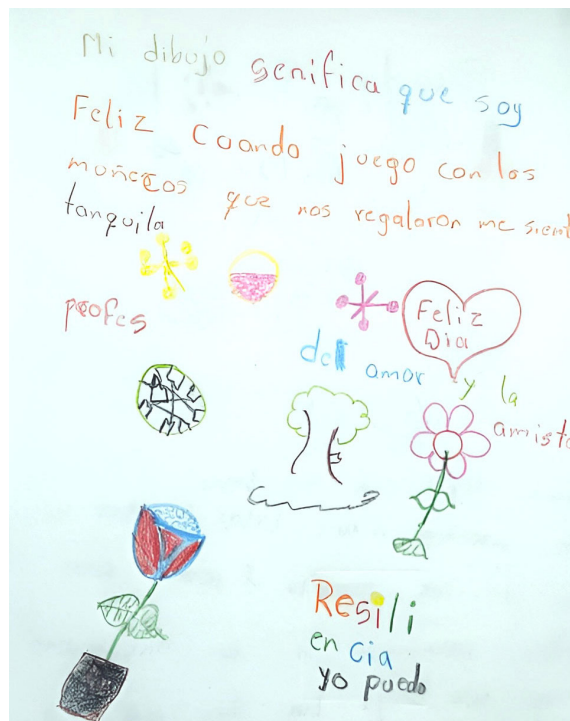 Mi dibujo senifica que soy
Feliz cuando juego con los
muñecos que nos regalaron me sient
tanquila
profes
Feliz
Dia
del amor y la
amist
Resili
en cia
yo puedo